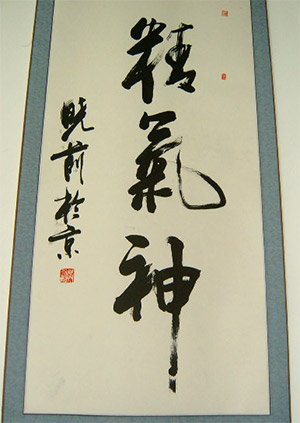 精氣神
晓前於京